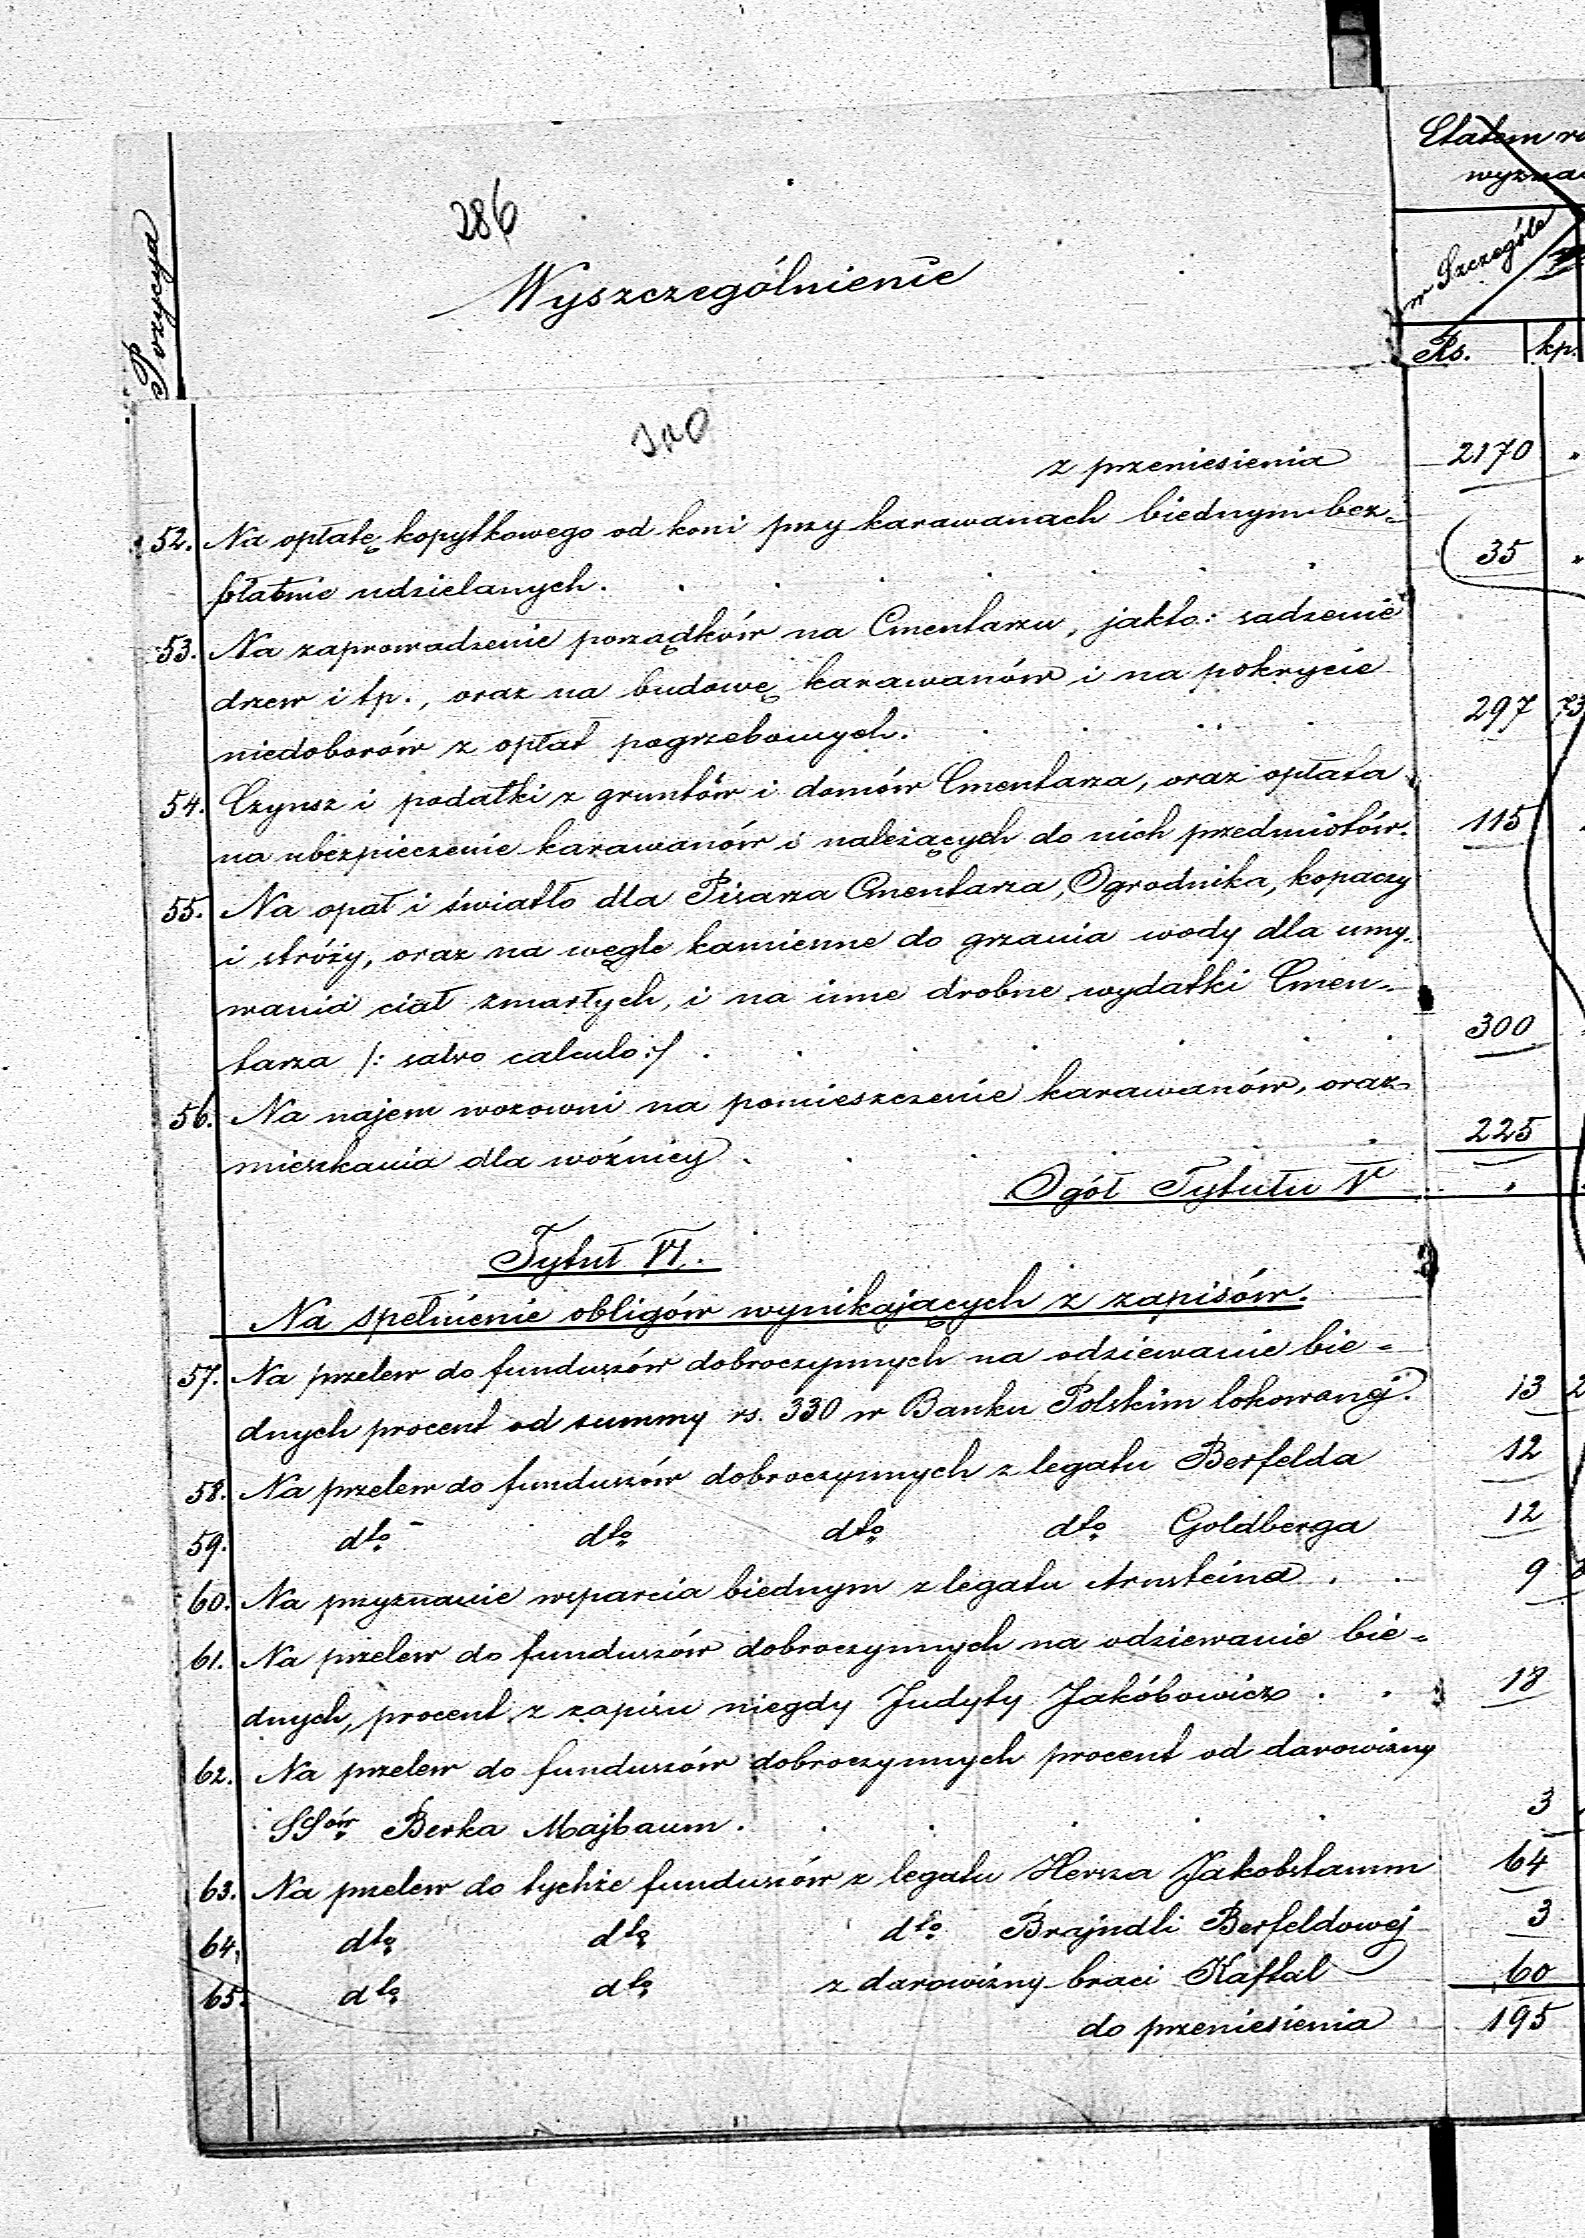 Etatem
wyzna
286
Pozycya
Wyszczególnienie
w Szczególe
Rs. kp.
z przeniesienia 2170 "
52. Na opłatę kopytkowego od koni przy karawanach biednym bez-
płatnie udzielanych. 35 "
53. Na zaprowadzenie porządków na Cmentarzu, jakto: sadzenie
drzew i tp., oraz na budowę karawanów i na pokrycie
niedoborów z opłat pogrzebowych. 297 73
54. Czynsz i podatki z gruntów i domów Cmentarza, oraz opłata
na ubezpieczenie karawanów i należących do nich przedmiotów. 115
55. Na opał i światło dla Pisarza Cmentarza, Ogrodnika, kopaczy
i stróży, oraz na węgle kamienne do grzania wody dla umy-
wania ciał zmarłych, i na inne drobne wydatki Cmen-
tarza /: salvo calculo :/ 300
56. Na najem wozowni na pomieszczenie karawanów, oraz
mieszkania dla woźnicy 225
Ogół Tytułu V "
Tytuł VI.
Na spełnienie obligów wynikających z zapisów.
57. Na przelew do funduszów dobroczynnych na odziewanie bie-
dnych procent od summy rs. 330 w Banku Polskim lokowanej. 13 2
58. Na przelew do funduszów dobroczynnych z legatu Berfelda 12
59. dto dto dto dto Goldberga 12
60. Na przyznanie wsparcia biednym z legatu Arnsteina 9
61. Na przelew do funduszów dobroczynnych na odziewanie bie-
dnych, procent z zapisu niegdy Judyty Jakóbowicz 18
62. Na przelew do funduszów dobroczynnych procent od darowizny
SSów Berka Majbaum. 3
63. Na przelew do tychże funduszów z legatu Hersza Jakobstamm 64
64. dto dto dto Brajndli Berfeldowej 3
65. dto dto z darowizny braci Kaftal 60
do przeniesienia 195